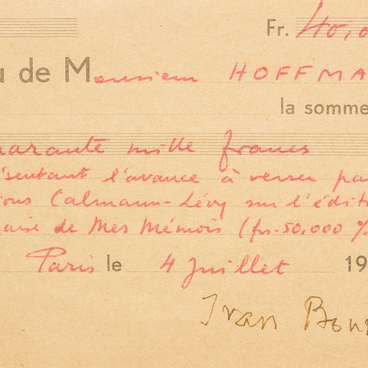 Fr. 40,0
u de Monsieur HOFFMA
la somme
uarante mille francs
ésentant l'avance à verser pa
ions Calmann-Lévy sur l'édit
aise de Mes Mémois (frs-50.000 %
Paris le 4 Juillet 19
Ivan Boun